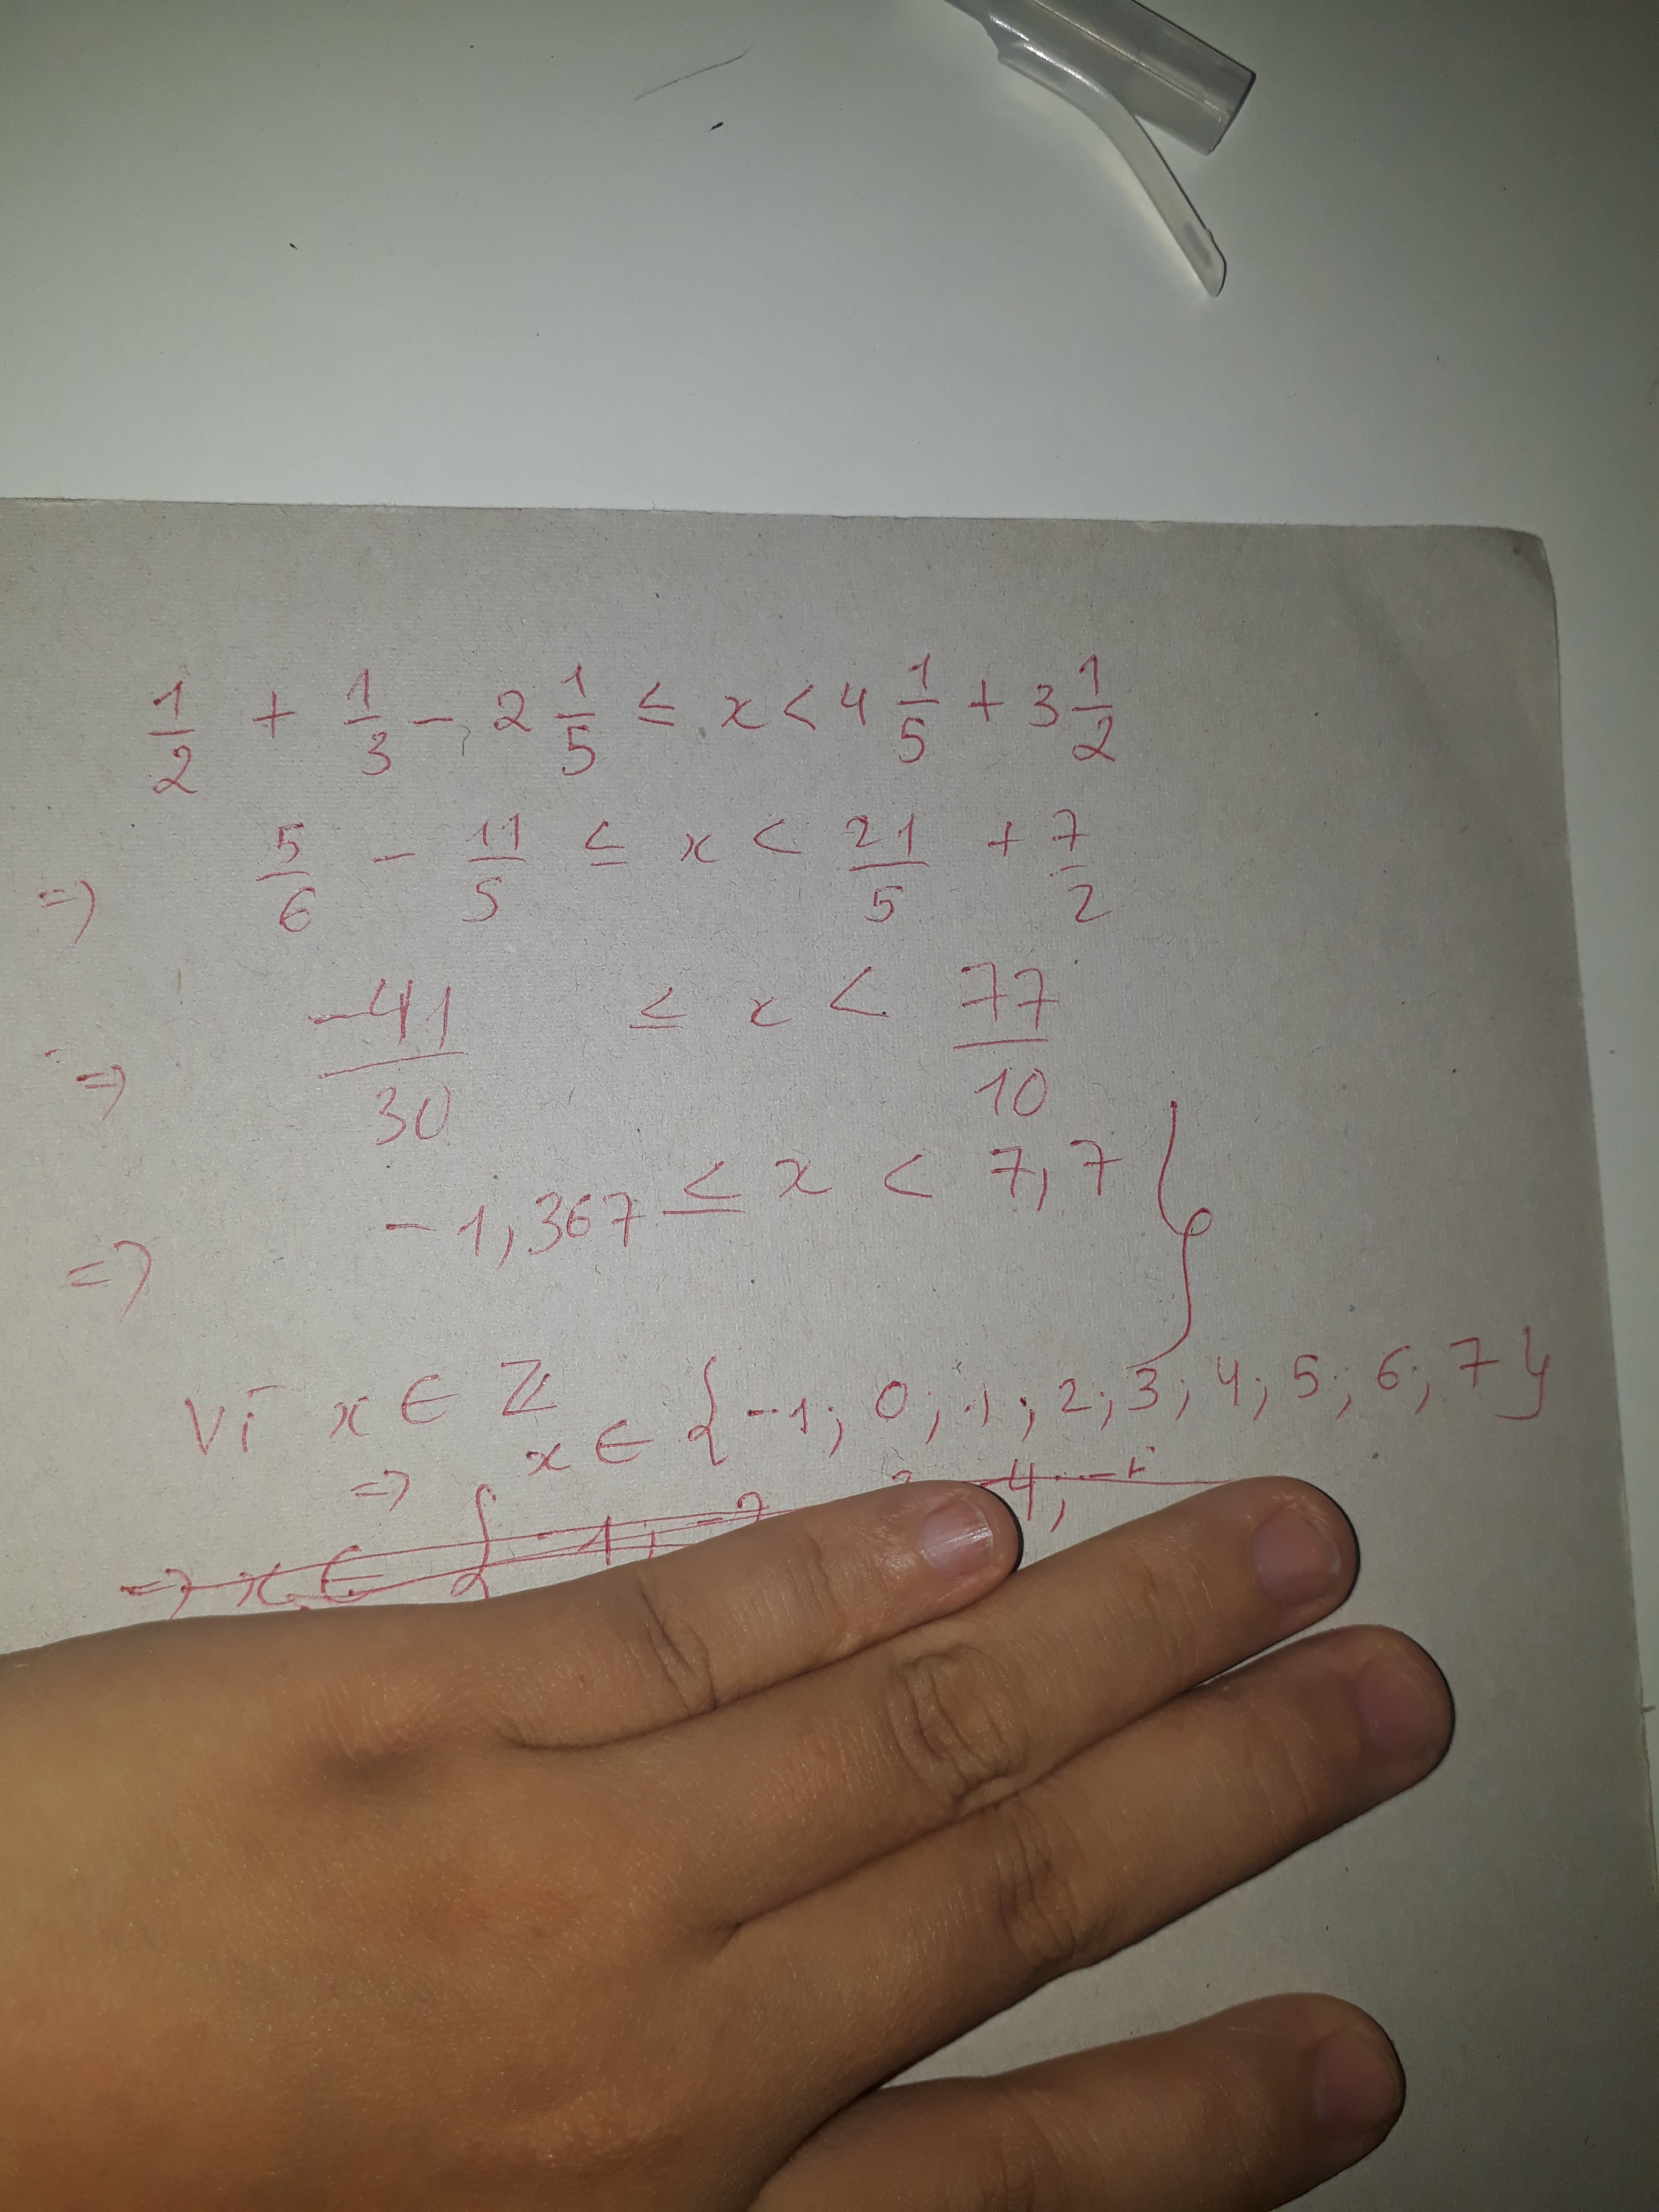 1/2 + 1/3 - 2 1/5 ≤ x < 4 1/5 + 3 1/2
=> 5/6 - 11/5 ≤ x < 21/5 + 7/2
=> -41/30 ≤ x < 77/10
=> -1,367 ≤ x < 7,7 }
Vì x ∈ Z
=> x ∈ {-1; 0; 1; 2; 3; 4; 5; 6; 7}
=> x ∈ { -1; -2 -4;